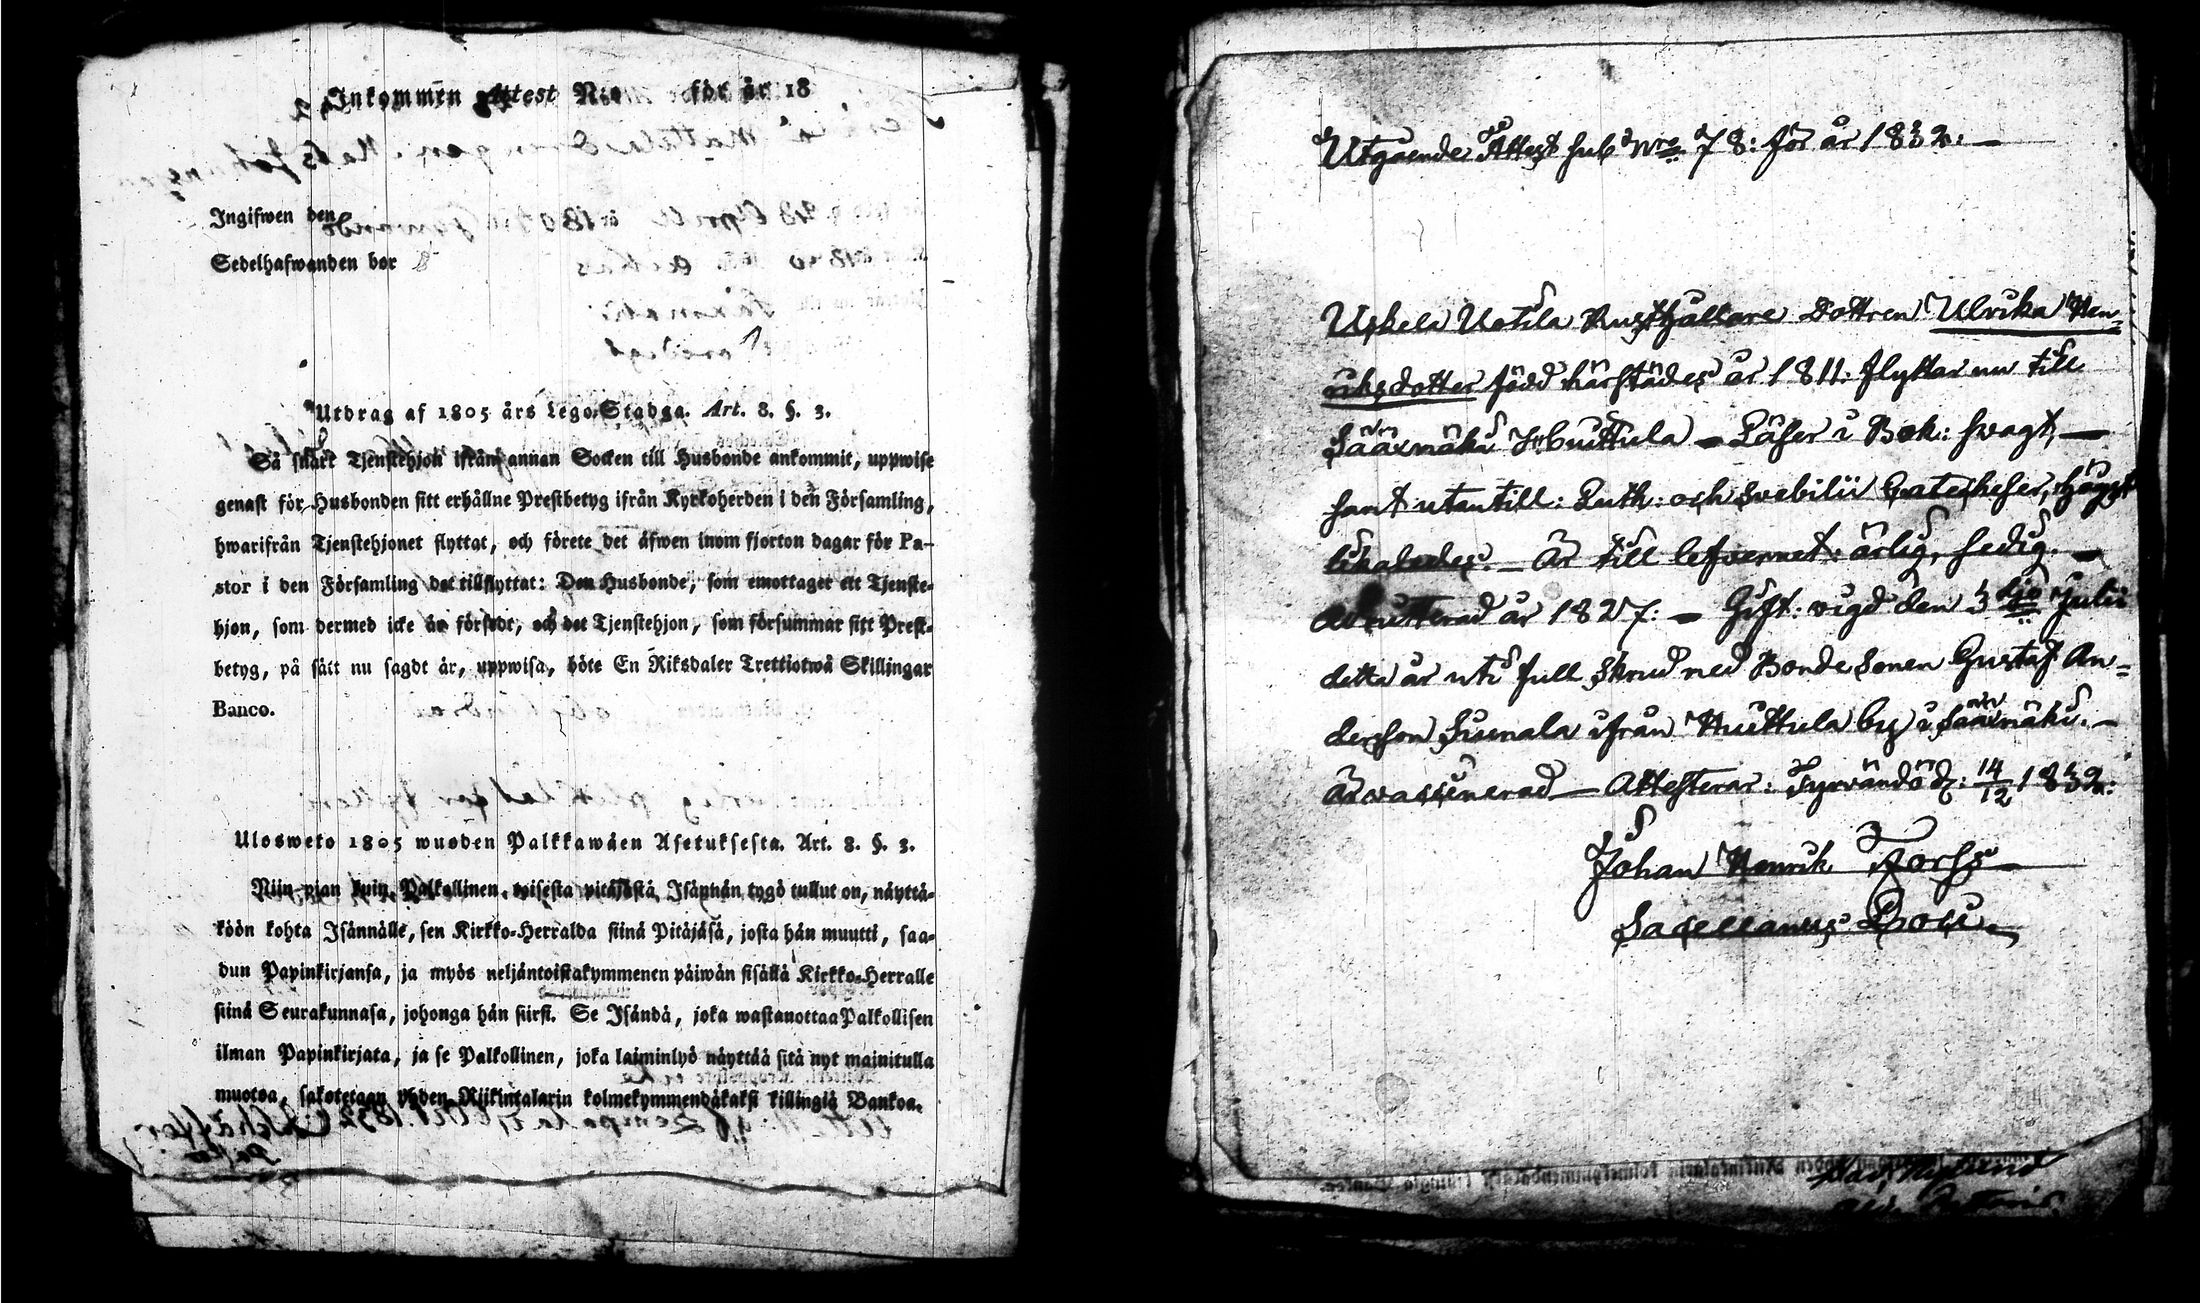 Inkommen Attest N:o för år 18
Ingifwen den
Sedelhafwanden bor
Utdrag af 1805 års Lego-Stadga. Art. 8. §. 3.
Så snart Tjenstehjon ifrån annan Socken till Husbonde ankommit, uppwise
genast för Husbonden sitt erhållne Prestbetyg ifrån Kyrkoherden i den Församling,
hwarifrån Tjenstehjonet flyttat, och förete det äfwen inom fjorton dagar för Pa-
stor i den Församling det tillflyttat: Den Husbonde, som emottager ett Tjenste-
hjon, som dermed icke är försedt, och det Tjenstehjon, som försummar sitt Prest-
betyg, på sätt nu sagdt är, uppwisa, böte En Riksdaler Trettiotwå Skillingar
Banco.
Ulosweto 1805 wuoden Palkkawäen Asetuksesta. Art. 8. §. 3.
Niin pian kuin Palkollinen toisesta pitäjästä Isännän tygö tullut on, näyttä-
köön kohta Isännälle, sen Kirkko-Herralda siinä Pitäjäsä, josta hän muutti, saa-
dun Papinkirjansa, ja myös neljäntoistakymmenen päiwän sisällä Kirkko-Herralle
siinä Seurakunnasa, johonga hän siirsi. Se Isändä, joka wastanottaa Palkollisen
ilman Papinkirjata, ja se Palkollinen, joka laiminlyö näyttää sitä nyt mainitulla
muotoa, sakotetaan yhden Riikintalarin kolmekymmendäkaksi killingiä Bankoa.
Utgående Attest sub N:ro 78: för år 1832: —
Uskela Uotila Rusthållare Dottren Ulrika Hen-
riksdotter född härstädes år 1811: flyttar nu till
Sääxmäki Huittula — Läser i Bok: swagt, —
samt utantill: Luth: och Svebilii Catecheser,
likaledes. — Är till lefvernet: ärlig, sedig. —
Admitterad år 1827: — Gift: vigd den 3 dje Julii
detta år uti full skrud med Bonde Sonen Gustaf An-
derson Simala ifrån Huittula by i Sääxmäki. —
Är vaccinerad — Attesterar: Tyrväntö d: 14/12 1832:
Johan Henrik Forss
Sacellanus Loci.